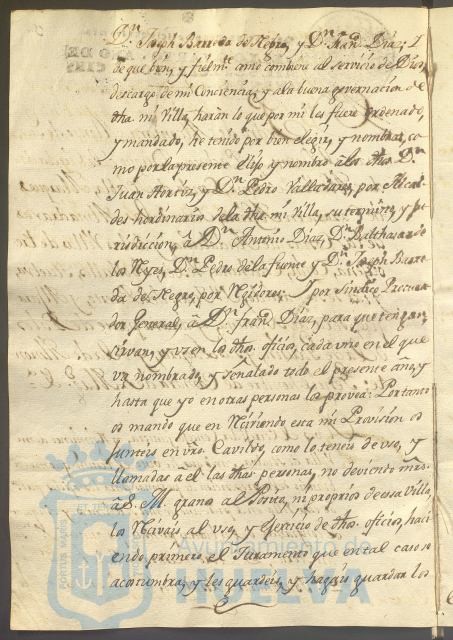 Dn. Joseph Barreda de Negro, y Dn. Fran. Diaz; I
de que bien, y fielmte. como combiene al servicio de Dios,
descargo de mi Conciencia, y a la buena governacion de
dha. mi Villa, haràn lo que por mi les fuere ordenado,
y mandado, he tenido por bien elegir, y nombrar, co-
mo por la presente elijo, y nombro a los dhos. Dn.
Juan Hortiz, y Dn. Pedro Valladares, por Alcal-
des hordinarios de la dha. mi Villa, su termino, y ju-
risdiccion, â Dn. Antonio Diaz, Dn. Balthasar de
los Reyes, Dn. Pedro de la fuente y Dn. Joseph Barre-
da de Negro, por Rexidores: I por Sindico Procura-
dor General, â Dn. fran. Diaz, para que tengan,
sirvan, y usen los dhos. oficios, cada uno en el que
va nombrado, y señalado todo el presente año, y
hasta que yo en otras personas los provea: Por tanto
os mando que en Reciviendo esta mi Provision os
Junteis en vro. Cavildo, como lo teneis de uso, y
llamadas â el las dhas. personas, no deviendo mrs.
â S. M. granos al Posito, ni proprios de essa Villa,
los Recivais al uso, y Exercicio de dhos. oficios, haci-
endo, primero el Juramento que en tal caso se
acostumbra, y les guardeis, y hagais guardar los
Ayuntamiento de
HUELVA